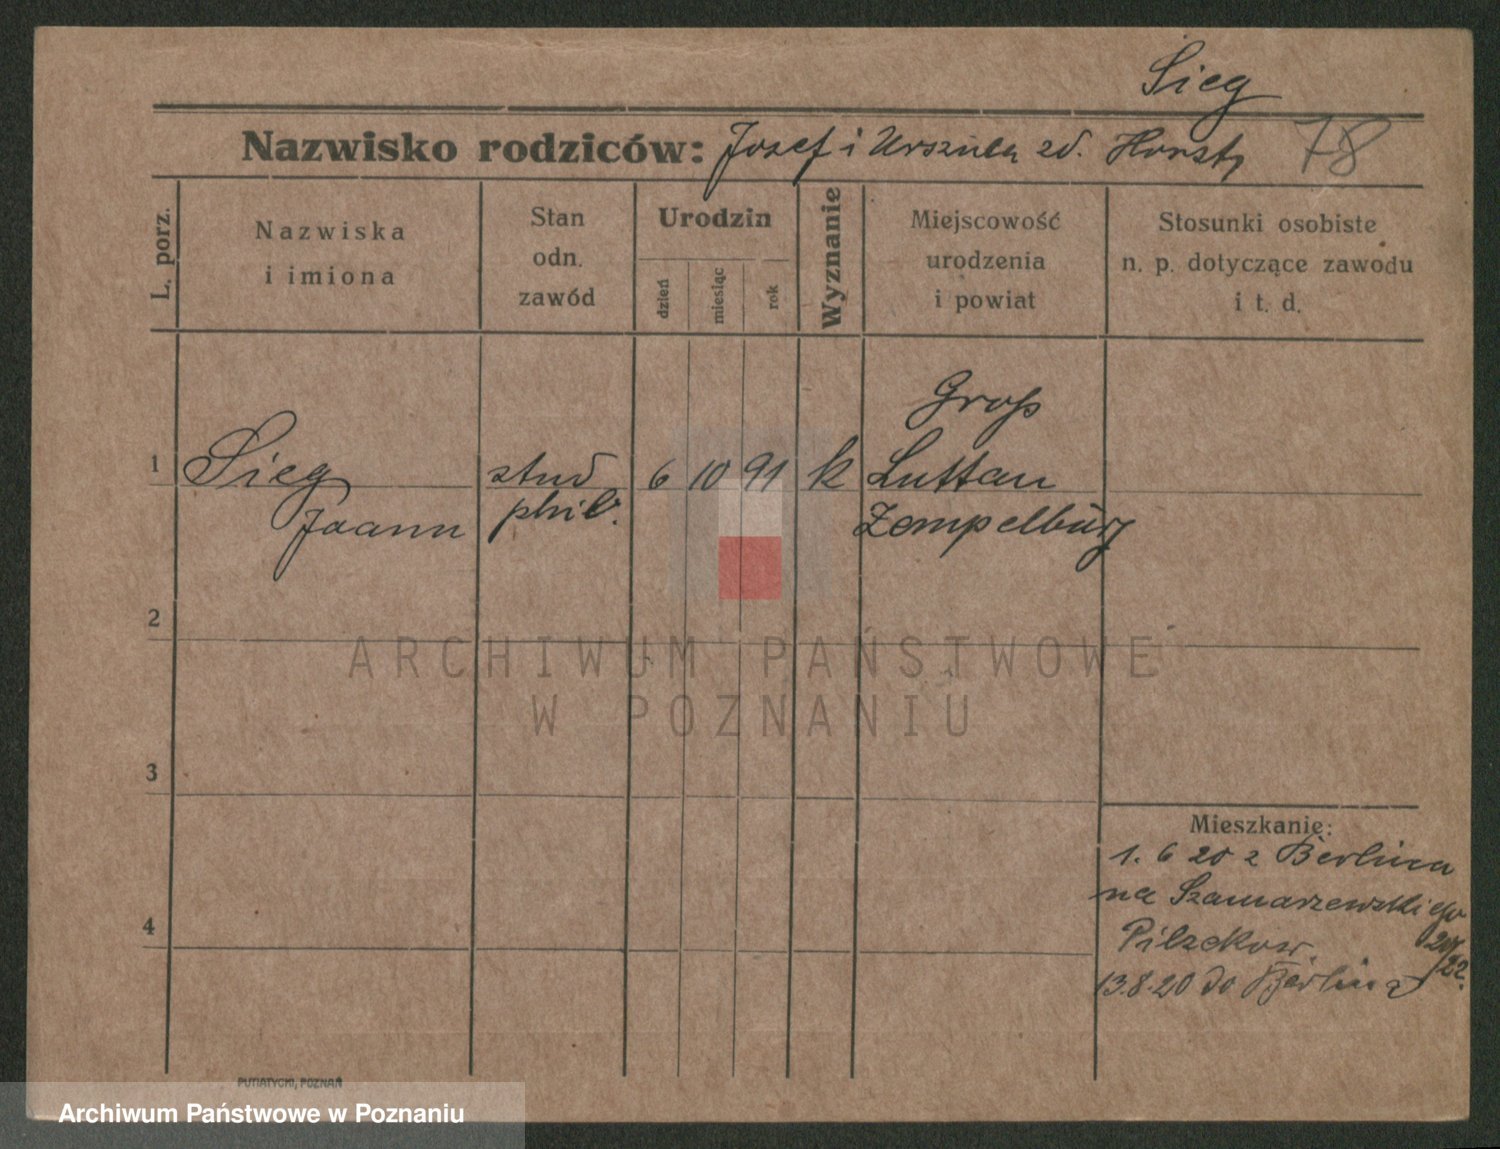 Sieg
Nazwisko rodziców: Jozef i Urszula zd. Horst 78
L. porz.
Nazwiska
i imiona
Stan
odn.
zawód
Urodzin
dzień
miesiąc
rok
Wyznanie
Miejscowość
urodzenia
i powiat
Stosunki osobiste
n. p. dotyczące zawodu
i t. d.
1
Sieg
Joann
stud
phil.
6 10 91 k
Groß
Luttau
Zempelburg
2
ARCHIWUM PAŃSTWOWE
W POZNANIU
3
4
Mieszkanie:
1. 6 20 z Berlina
na Szamarzewskiego
20/22.
13.8.20 do Berlina
PUTIATYCKI, POZNAŃ
Archiwum Państwowe w Poznaniu